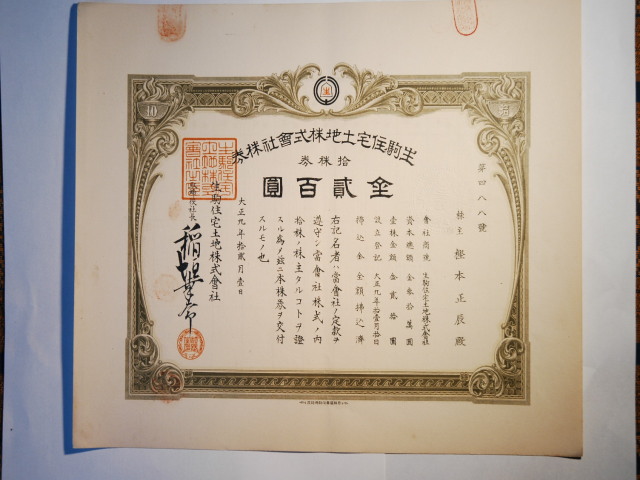 生駒住宅土地株式會社株券
拾株券
金貳百圓
第四八八號
株主 樫本正辰殿
會社商號 生駒住宅土地株式會社
資本總額 金參拾萬圓
壹株金額 金貳拾圓
設立登記 大正九年拾壹月拾日
拂込金 全額拂込濟
右記名者ハ當會社ノ定款ヲ
遵守シ當會社株式ノ內
拾株ノ株主タルコトヲ證
スル為メ玆ニ本株券ヲ交付
スルモノ也
大正九年拾貳月壹日
生駒住宅土地株式會社
取締役社長
10